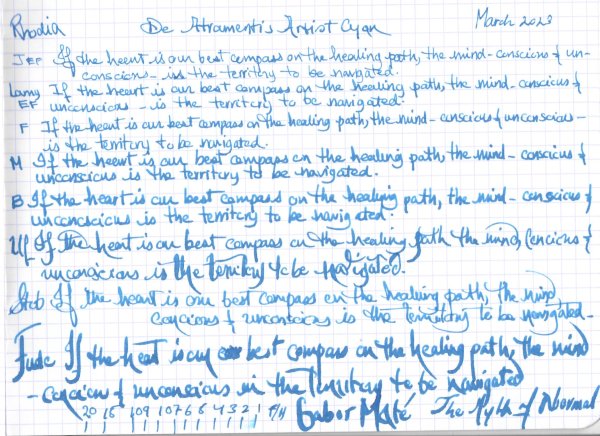 Rhodia De Atramentis Artist Cyan March 2023
JEF If the heart is our best compass on the healing path, the mind - conscious & un-
conscious - is the territry to be navigated.
Lamy If the heart is our best compass on the healing path, the mind - conscious &
EF unconscious - is the territory to be navigated.
F If the heart is our best compass on the healing path, the mind - conscious & unconscious -
is the territory to be navigated.
M If the heart is our best compass on the healing path, the mind - conscious &
unconscious is the territory to be navigated.
B If the heart is our best compass on the healing path, the mind - conscious &
unconscious is the territory to be navigated.
If the heart is our best compass on the healing path the mind, &
unconscious is the territory to be navigated.
Stub If the heart is our best compass on the healing path, the mind
& unconscious is the territory to be navigated -
Fude If the heart is our best compass on the healing path, the mind
- & unconscious in the territory to be navigated
20 15 10 9 10 7 6 6 4 3 2 1 F/H Gabor Maté The Myth of Normal